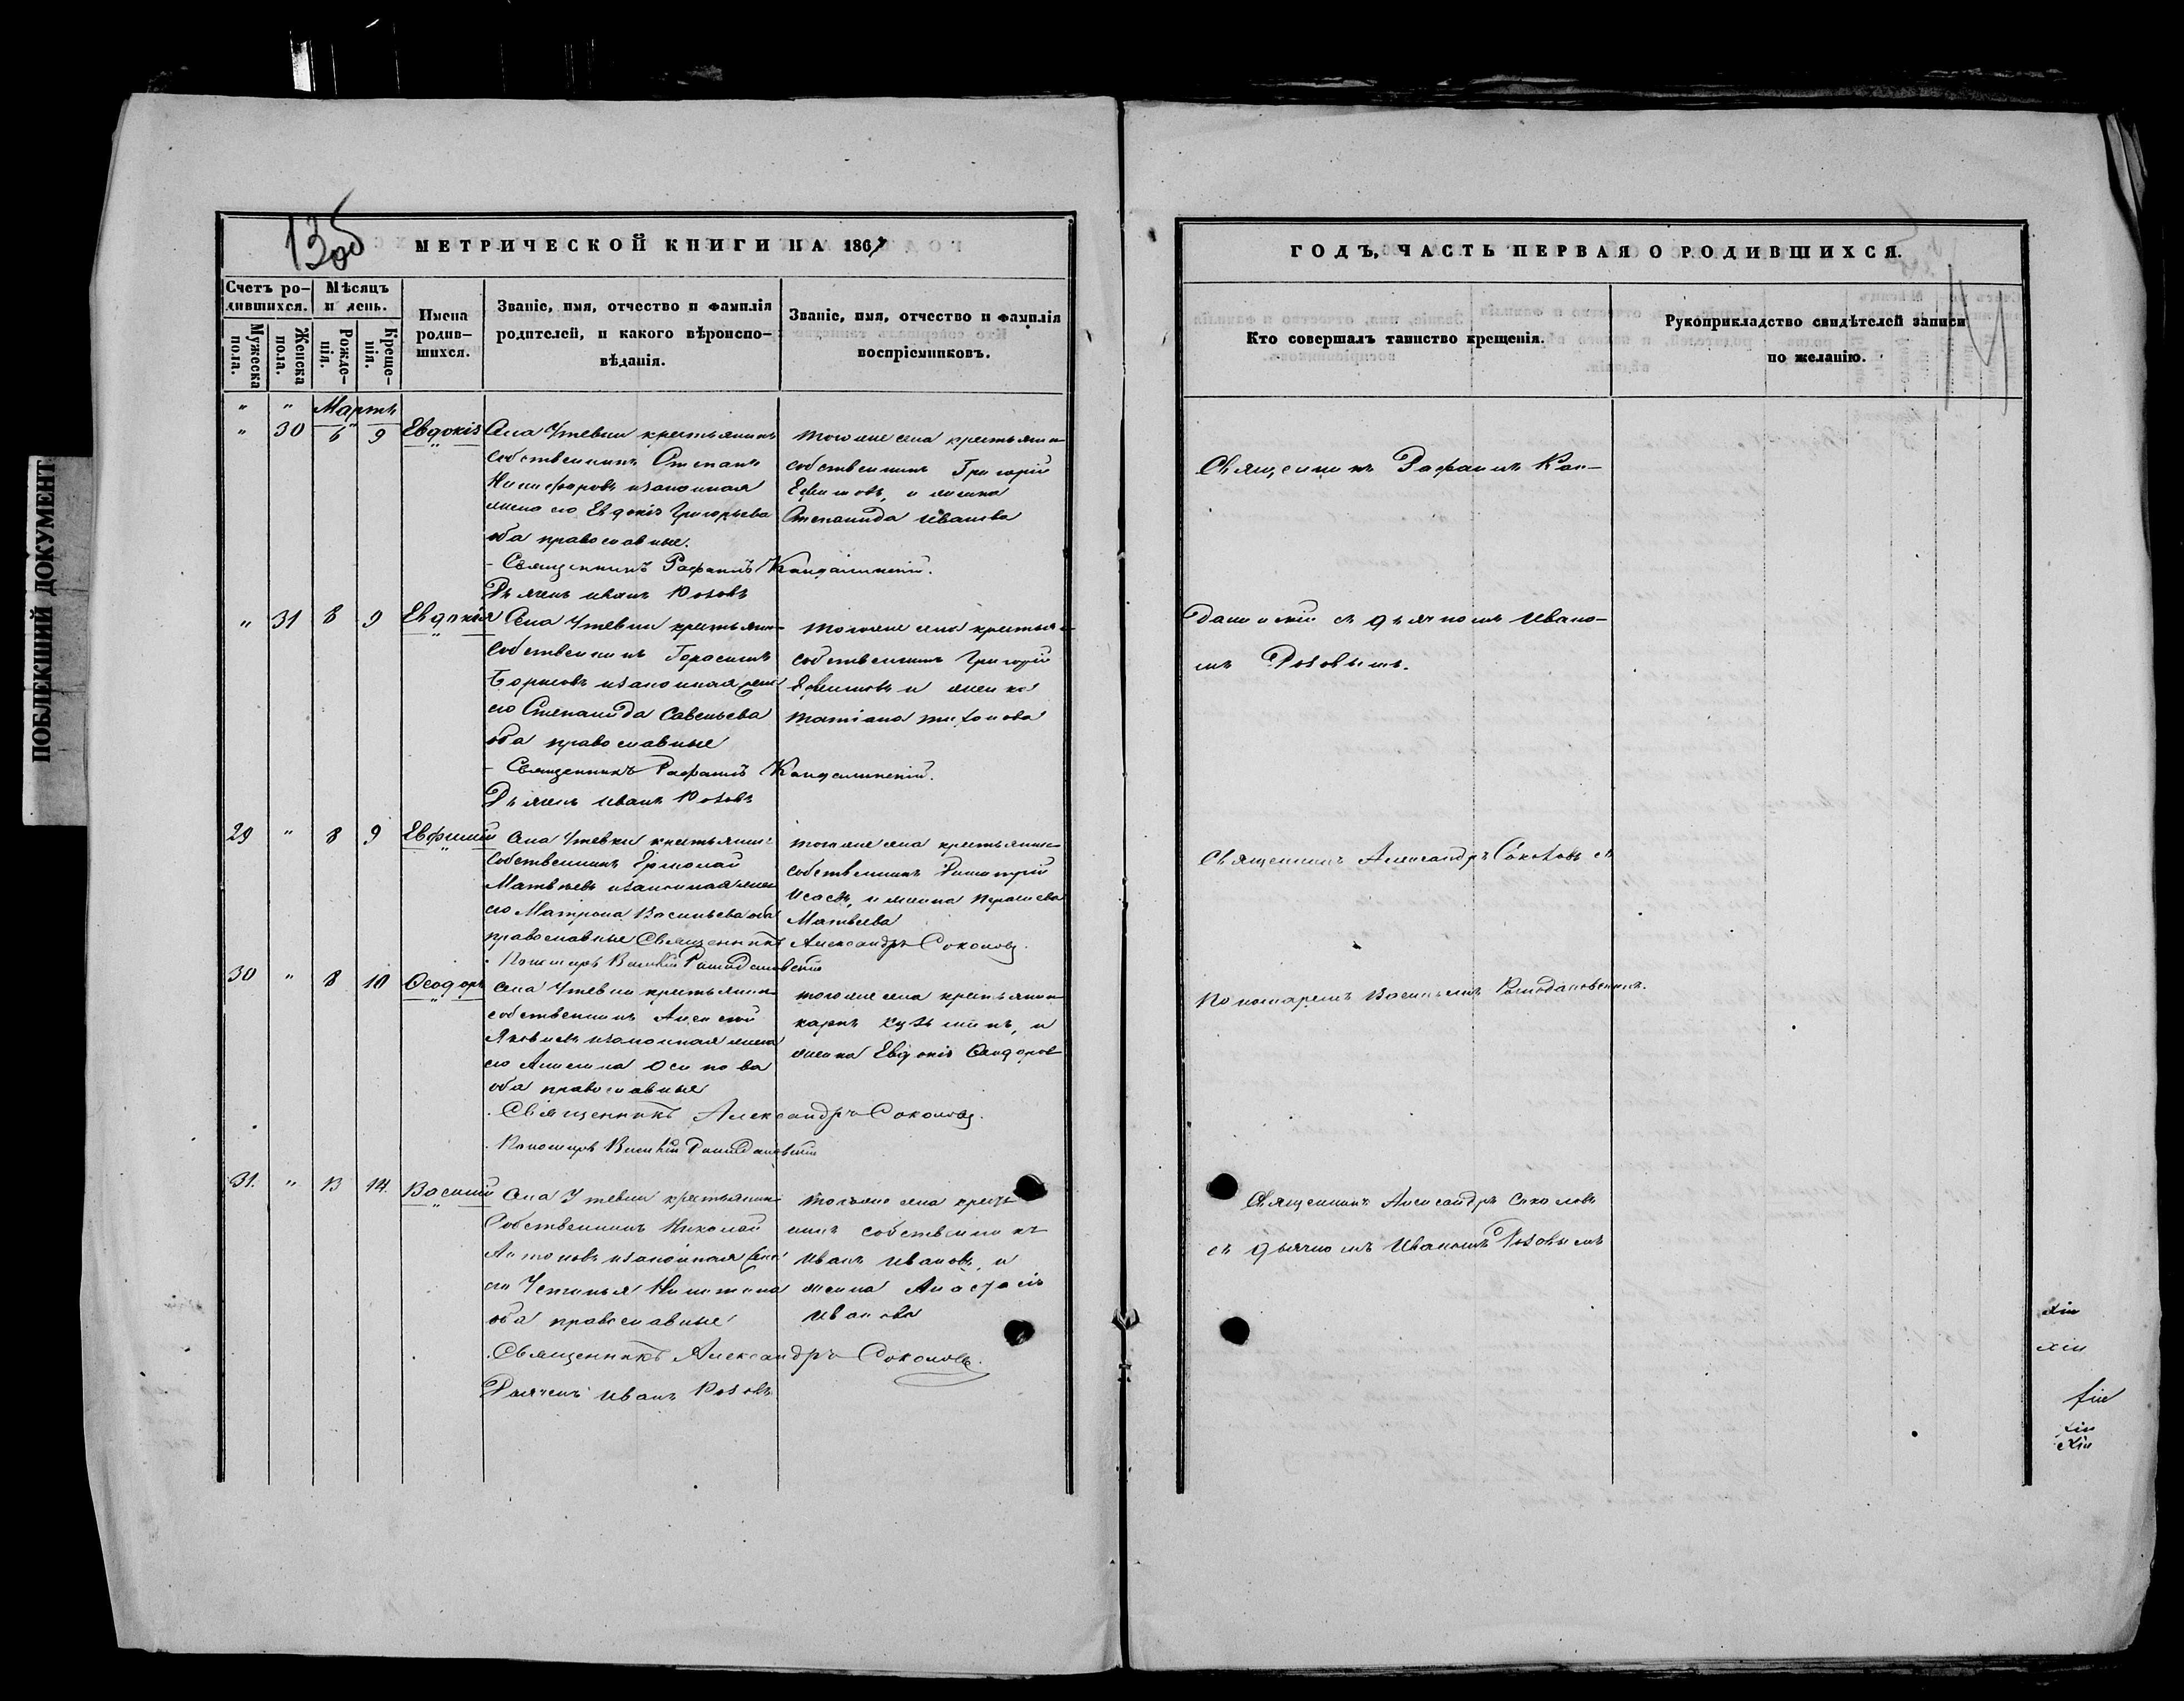 ПОБЛЕКШИЙ ДОКУМЕНТ
13 об
МЕТРИЧЕСКОЙ КНИГИ НА 1867
Счетъ ро-
дившихся.
Мужеска
пола.
Женска
пола.
Мѣсяцъ
и день.
Рожде-
нія.
Креще-
нія.
Имена
родив-
шихся.
Званіе, имя, отчество и фамилія
родителей, и какого вѣроиспо-
вѣданія.
Званіе, имя, отчество и фамилія
воспріемниковъ.
" " Мартъ
" 30 6 9 Евдокія
Села Утевки крестьянинъ
собственникъ Стефанъ
Никифоровъ и законная
жена его Евдокія Григорьева
оба православные.
- Священникъ Рафаилъ Кандалинскій.
Дьячекъ Иванъ Розовъ
тогоже села крестьянин
собственникъ Григорій
Ефимовъ, и женка
Степанида Иванова
" 31 8 9 Евдокія
Села Утевки крестьянин
собственникъ Герасимъ
Борисовъ и законная жена
его Степанида Савельева
оба православные
- Священникъ Рафаилъ Кандалинскій.
Дьячекъ Иванъ Розовъ
тогоже села крестьян
собственникъ Григорій
Ефимовъ и женка
Татіана Тихонова
29 " 8 9 Евфимій
Села Утевки крестьянин
собственникъ Ермолай
Матвѣевъ и законная жена
его Матрона Васильева оба
православные Священникъ Александръ Соколовъ.
Пономарь Василій Ромодановскій
тогоже села крестьянин
собственникъ Димитрій
Исаевъ, и женка
Матвеева
30 " 8 10 Ѳеодоръ
Села Утевки крестьянин
собственникъ Алексѣй
Яковлевъ и законная жена
его Осипова
оба православныя
Священникъ Александръ Соколовъ.
Пономарь Василій Ромодановскій
тогоже села крестьянин
Карпъ Кузьминъ, и
женка Евдокія Ѳеодоров
31. " 13 14. Василій
Села Утевки крестьянин
Собственникъ Николай
Антоновъ и законная жена
его Устинья Никитина
оба православные
Священникъ Александръ Соколовъ.
Дьячекъ Иванъ Розовъ
тогоже села крестья
нинъ собственникъ
Иванъ Ивановъ, и
женка Анастасія
Иванова
ГОДЪ, ЧАСТЬ ПЕРВАЯ О РОДИВШИХСЯ.
14
Кто совершалъ таинство крещенія.
Рукоприкладство свидѣтелей записи
по желанію.
Священникъ Рафаилъ Кан-
далинскій съ дьячкомъ Ивано-
мъ Розовымъ.
Священникъ Александръ Соколовъ съ
Пономаремъ Васильемъ Ромодановскимъ.
Священникъ Александръ Соколовъ
съ дьячкомъ Иваномъ Розовымъ